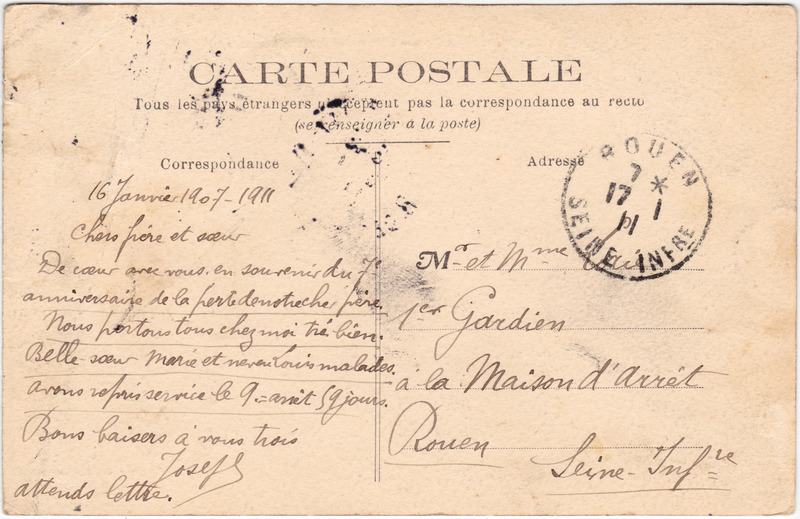 CARTE POSTALE
Tous les pays étrangers n'acceptent pas la correspondance au recto
(se renseigner à la poste)
Correspondance
Adresse
16 Janvier 1907-1911
Chers frère et sœur
De cœur avec vous en souvenir du 7e
anniversaire de la perte de notre cher père.
Nous portons tous chez moi très bien.
Belle-sœur Marie et neveu Louis malades.
avons repris service le 9.= arrêt 59 jours.
Bons baisers à vous trois
Joseph
attends lettre.
ROUEN
7 *
17 1
11
SEINE INFRE
Mr et Mme
1er Gardien
à la Maison d'Arrêt
Rouen
Seine-Infre